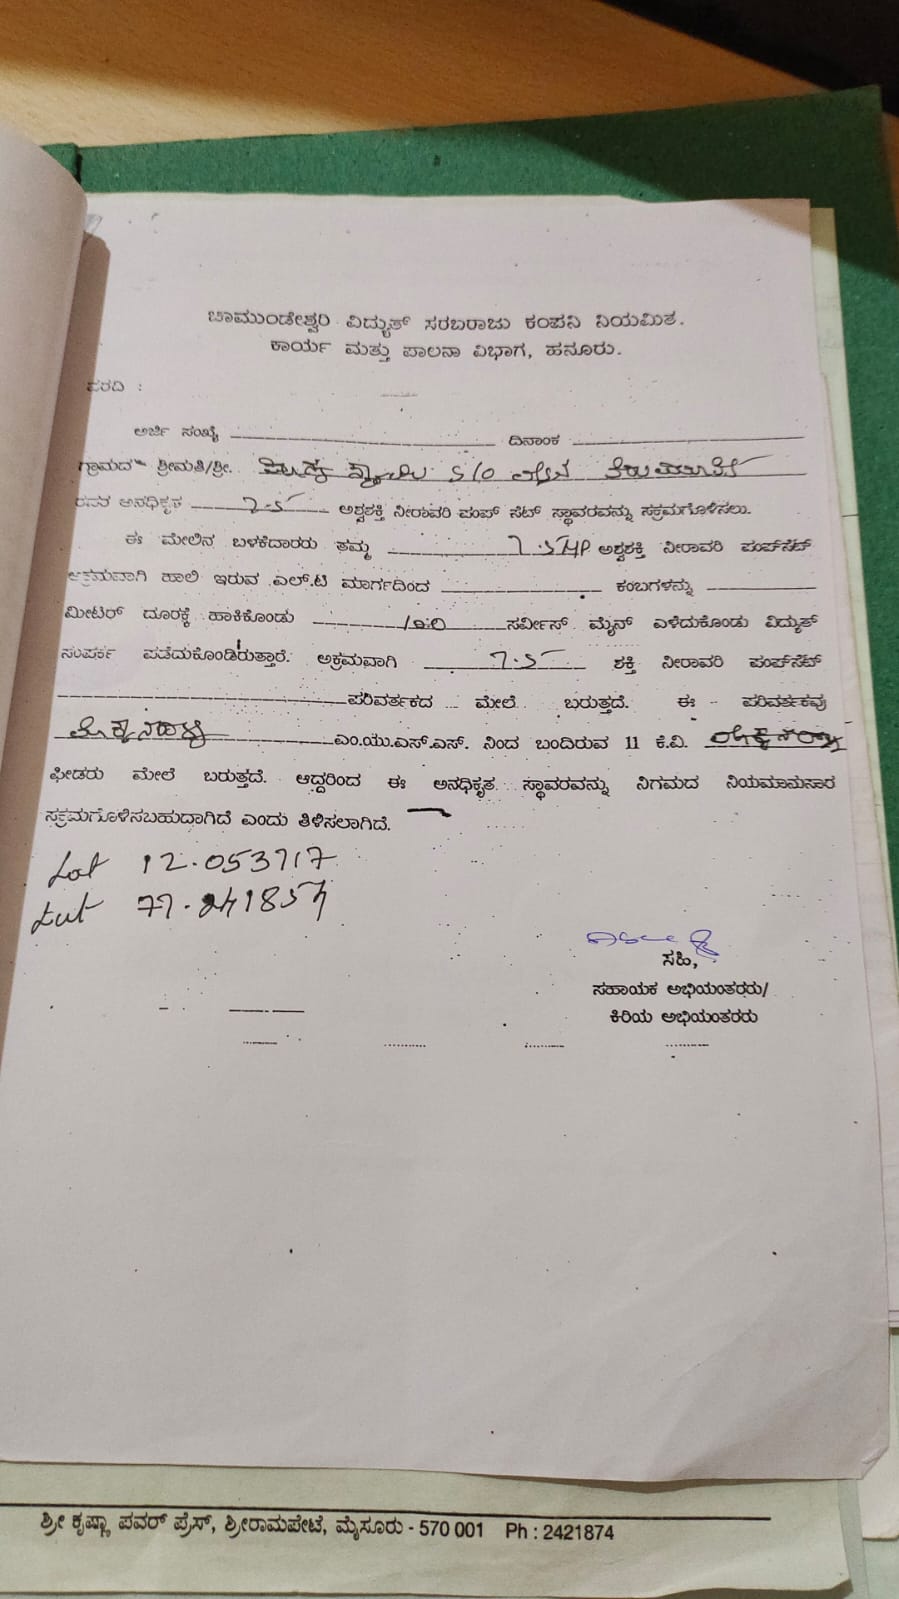 ಚಾಮುಂಡೇಶ್ವರಿ ವಿದ್ಯುತ್ ಸರಬರಾಜು ಕಂಪನಿ ನಿಯಮಿತ.
ಕಾರ್ಯ ಮತ್ತು ಪಾಲನಾ ವಿಭಾಗ, ಹನೂರು.
ವರದಿ :
ಅರ್ಜಿ ಸಂಖ್ಯೆ ದಿನಾಂಕ
ಗ್ರಾಮದ ಶ್ರೀಮತಿ/ಶ್ರೀ. S/O
ರವರ ಅನಧಿಕೃತ 7.5 ಅಶ್ವಶಕ್ತಿ ನೀರಾವರಿ ಪಂಪ್ ಸೆಟ್ ಸ್ಥಾವರವನ್ನು ಸಕ್ರಮಗೊಳಿಸಲು.
ಈ ಮೇಲಿನ ಬಳಕೆದಾರರು ತಮ್ಮ 7.5HP ಅಶ್ವಶಕ್ತಿ ನೀರಾವರಿ ಪಂಪ್‌ಸೆಟ್
ಅಕ್ರಮವಾಗಿ ಹಾಲಿ ಇರುವ ಎಲ್.ಟಿ ಮಾರ್ಗದಿಂದ ಕಂಬಗಳನ್ನು
ಮೀಟರ್ ದೂರಕ್ಕೆ ಹಾಕಿಕೊಂಡು ಸರ್ವೀಸ್ ಮೈನ್ ಎಳೆದುಕೊಂಡು ವಿದ್ಯುತ್
ಸಂಪರ್ಕ ಪಡೆದುಕೊಂಡಿರುತ್ತಾರೆ. ಅಕ್ರಮವಾಗಿ 7.5 ಶಕ್ತಿ ನೀರಾವರಿ ಪಂಪ್‌ಸೆಟ್
ಪರಿವರ್ತಕದ ಮೇಲೆ ಬರುತ್ತದೆ. ಈ ಪರಿವರ್ತಕವು
ಎಂ.ಯು.ಎಸ್.ಎಸ್. ನಿಂದ ಬಂದಿರುವ 11 ಕೆ.ವಿ.
ಫೀಡರು ಮೇಲೆ ಬರುತ್ತದೆ. ಆದ್ದರಿಂದ ಈ ಅನಧಿಕೃತ ಸ್ಥಾವರವನ್ನು ನಿಗಮದ ನಿಯಮಾನುಸಾರ
ಸಕ್ರಮಗೊಳಿಸಬಹುದಾಗಿದೆ ಎಂದು ತಿಳಿಸಲಾಗಿದೆ.
Lat 12.053717
77.241854
ಸಹಿ,
ಸಹಾಯಕ ಅಭಿಯಂತರರು/
ಕಿರಿಯ ಅಭಿಯಂತರರು
ಶ್ರೀ ಕೃಷ್ಣಾ ಪವರ್ ಪ್ರೆಸ್, ಶ್ರೀರಾಮಪೇಟೆ, ಮೈಸೂರು - 570 001 Ph : 2421874